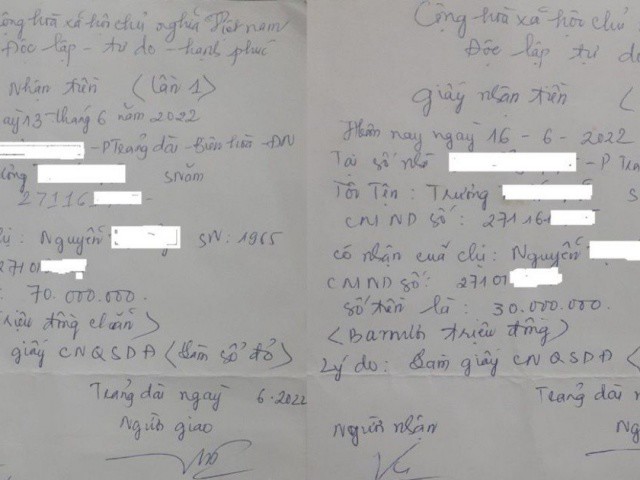 Cộng hoà xã hôi chủ nghĩa Việt nam
Độc lâp - tư do - hạnh phúc
Nhận tiền (lần 1)
ày 13 tháng 6 năm 2022
- P Trảng dài - Biên hoà - ĐN
ông SNăm
27116
ị: Nguyễn SN: 1965
27101
: 70.000.000.
triệu đồng chẵn)
giấy CNQSDĐ (Làm sổ đỏ)
Trảng dài ngay 6.2022
Người giao
Cộng hoà xã hội chủ
Độc lâp tự do
giấy nhận tiền (
Hôm nay ngay 16 - 6 - 2022
Tại số nhà - P Trả
Tôi Tên: Trương S
CMND số: 271161
có nhận của chị: Nguyễn
CMND số: 27101
số tiền là: 30.000.000.
(Ba mươi triệu đồng)
Lý do: Làm giấy CNQSDĐ (
Trảng dài n
Người nhận Ng